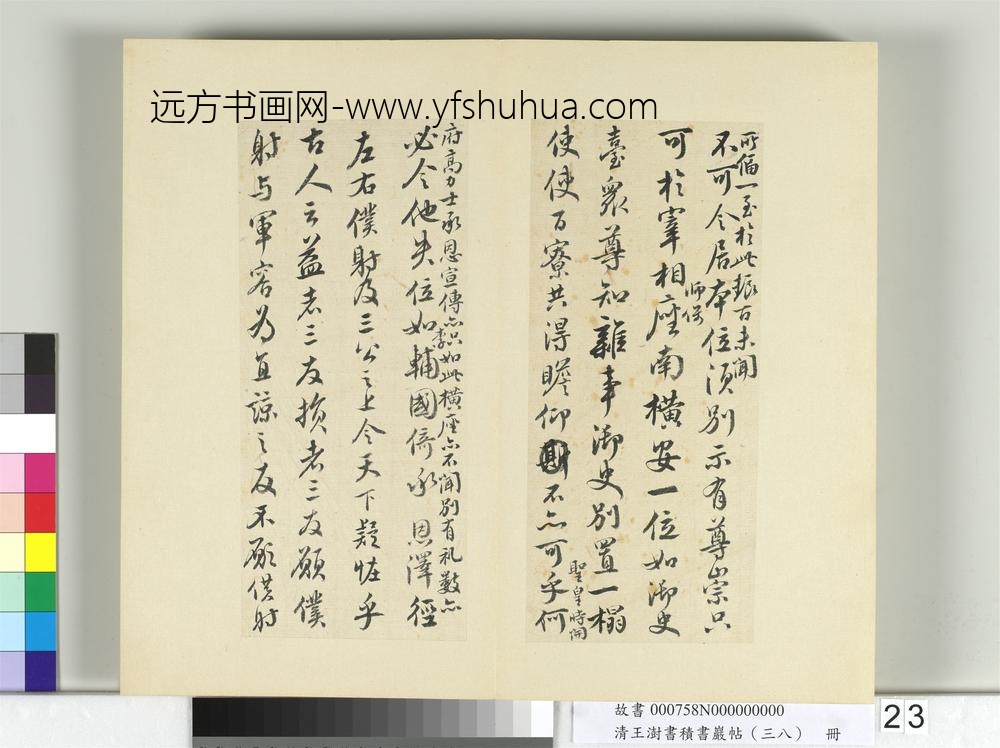 远方书画网-www.yfshuhua.com
所偏一至於此振古未聞
不可令居本位須別示有尊崇只
師保
可於宰相座南橫安一位如御史
臺衆尊知雜事御史別置一榻
聖皇時開
使使百寮共得瞻仰不亦可乎何
府高力士承恩宣傳亦只如此橫座亦不聞別有礼數亦
必令他失位如李輔國倚承恩澤徑
左右僕射及三公之上令天下疑怪乎
古人云益者三友損者三友願僕
射与軍容為直諒之友不願僕射
故書 000758N000000000
清王澍書積書巖帖（三八） 冊
23